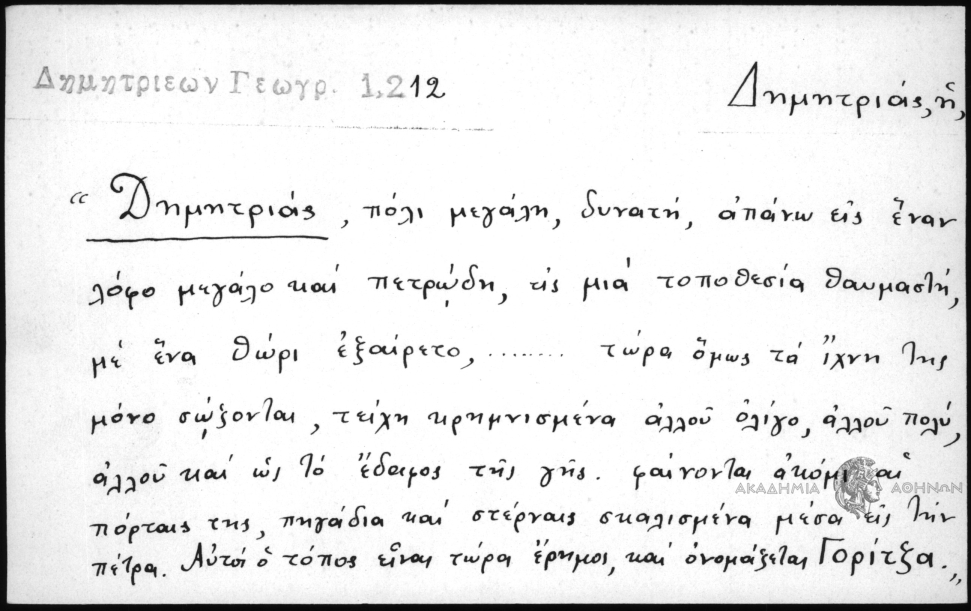 Δημητριεων Γεωγρ. 1,212
Δημητριάς, ἡ,
“ Δημητριάς, πόλι μεγάλη, δυνατή, ἀπάνω εἰς ἕναν
λόφο μεγάλο καί πετρώδη, εἰς μιά τοποθεσία θαυμαστή,
μέ ἕνα θώρι ἐξαίρετο, ........ τώρα ὅμως τά ἴχνη της
μόνο σῴζονται, τείχη κρημνισμένα ἀλλοῦ ὀλίγο, ἀλλοῦ πολύ,
ἀλλοῦ καί ὡς τό ἔδαφος τῆς γῆς. φαίνονται ἀκόμι αἱ
ΑΚΑΔΗΜΙΑ ΑΘΗΝΩΝ
πόρταις της, πηγάδια καί στέρναις σκαλισμένα μέσα εἰς τήν
πέτρα. Αὐτός ὁ τόπος εἶναι τώρα ἔρημος, καί ὀνομάζεται Γορίτζα. ”